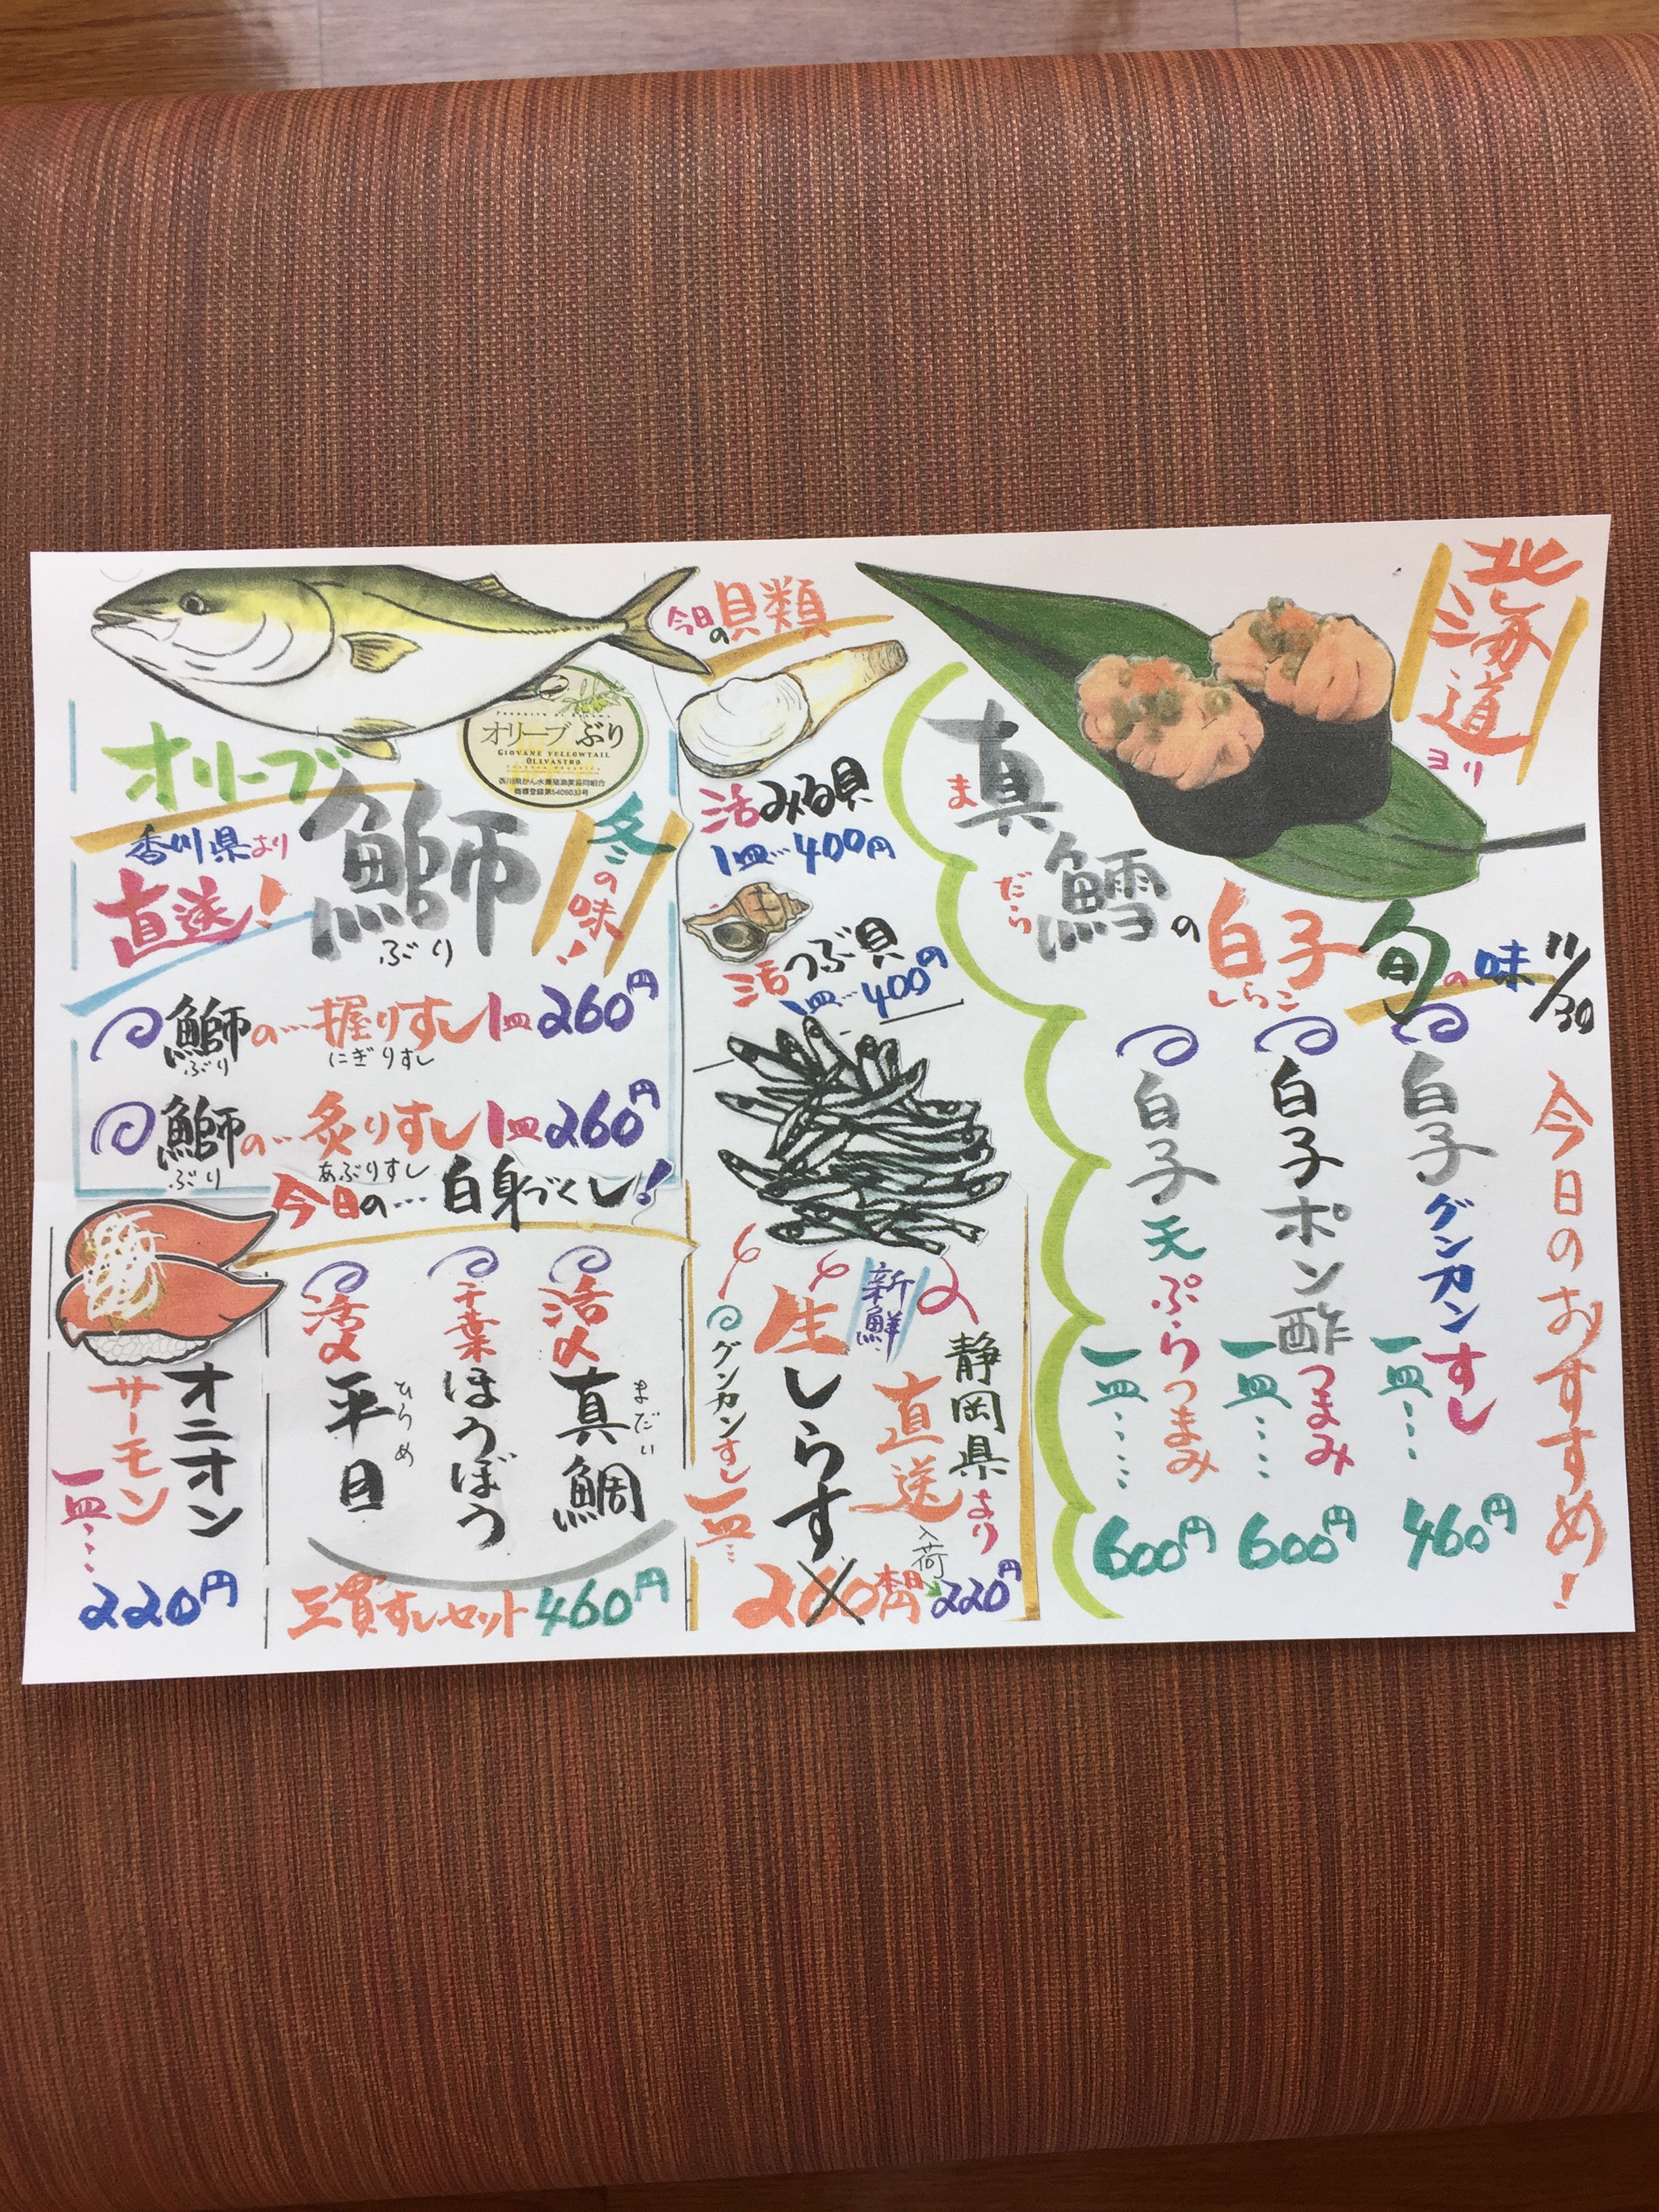 北海道
ヨリ
11/30
今日のおすすめ!
真鱈の白子
まだら
しらこ
旬の味
白子グンカンすし
一皿……460円
白子ポン酢つまみ
一皿……600円
白子天ぷらつまみ
一皿……600円
今日の貝類
活みる貝
1皿…400円
活つぶ貝
1皿…400円
新鮮
静岡県より
直送
入荷
生しらす
グンカンすし一皿…
260円
本日
220円
オリーブぶり
GIOVANE YELLOWTAIL
OLLVASTRO
香川県かん水養殖漁業協同組合
商標登録第5406033号
オリーブ鰤
ぶり
香川県より
直送!
冬の味!
鰤の…握りすし1皿260円
ぶり
にぎりすし
鰤の…炙りすし1皿260円
ぶり
あぶりすし
今日の…白身づくし!
活〆真鯛
まだい
千葉ほうぼう
活〆平目
ひらめ
三貫すしセット460円
オニオン
サーモン
一皿…
220円